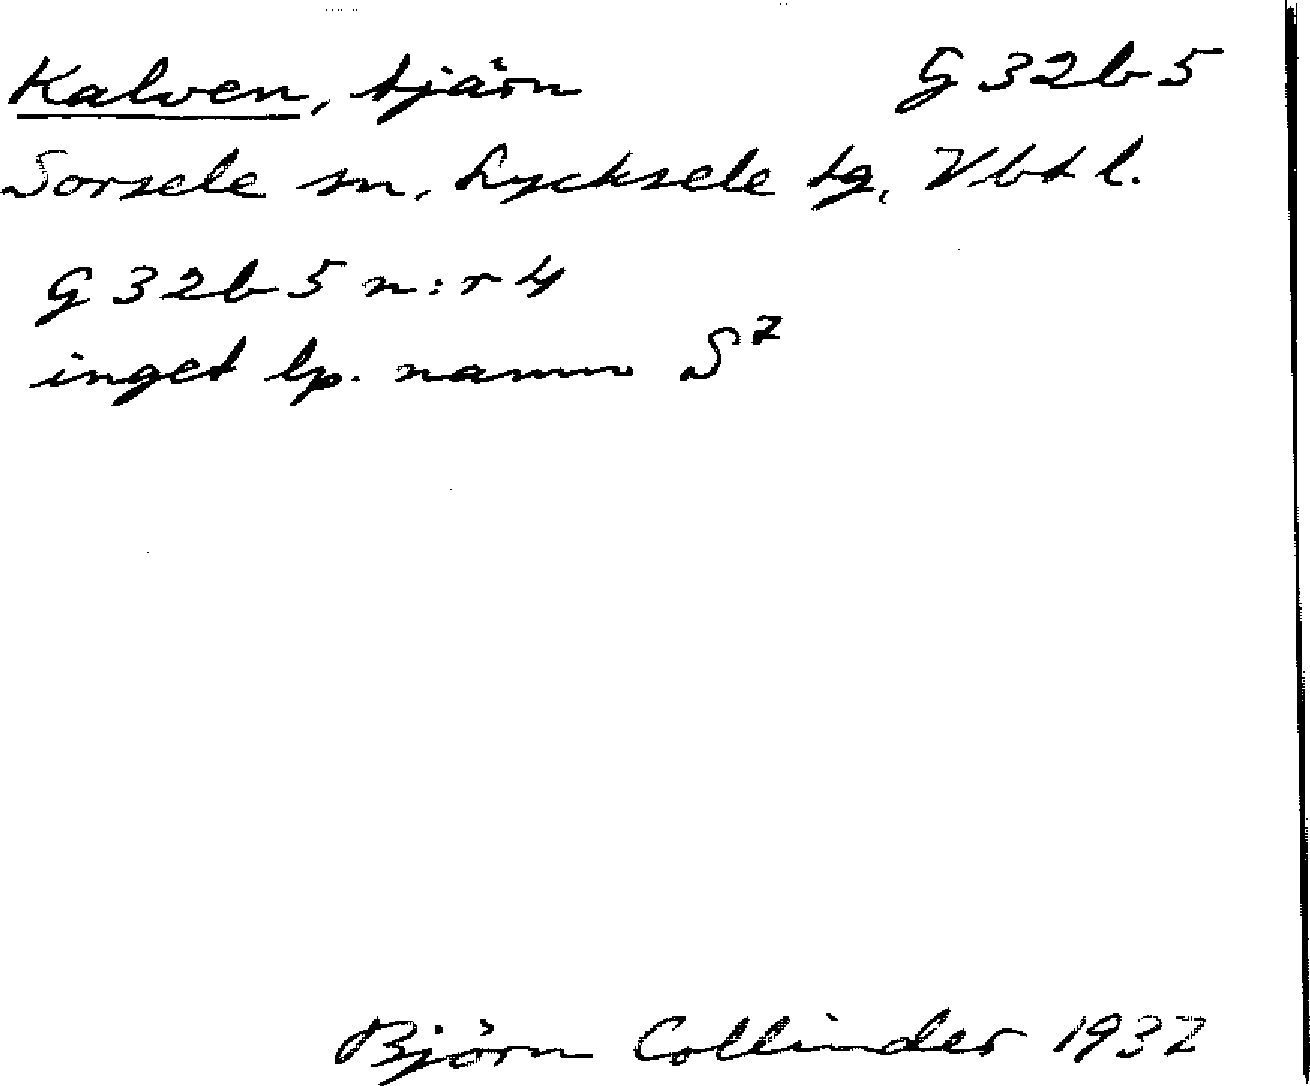 Kalven, tjärn G 32 b 5
Sorsele sn, Lycksele tg, Vbt l.
G 32 b 5 n:r 4
inget lp. namn S⁷
Björn Collinder 1932